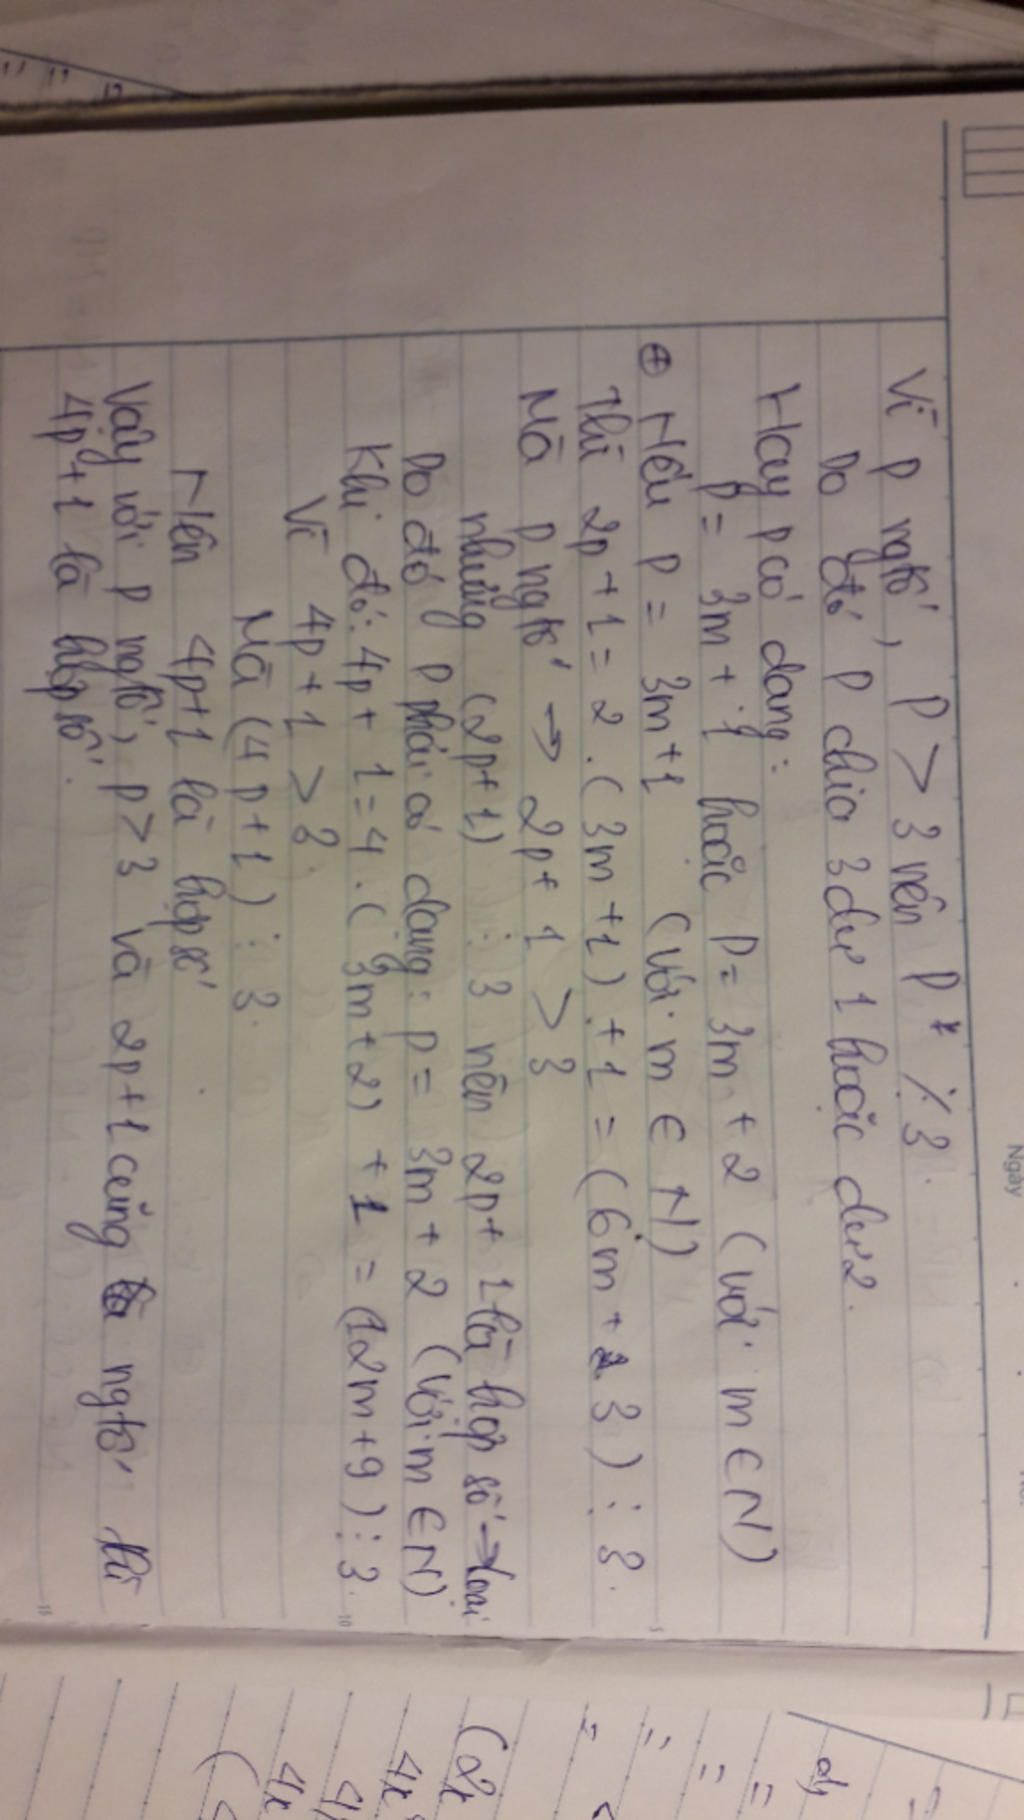 Ngày
Vì p ngtố, p > 3 nên p ⋮̸ 3.
Do đó p chia 3 dư 1 hoặc dư 2.
Hay p có dạng:
p = 3m + 1 hoặc p = 3m + 2 (với m ∈ N)
⊕ Nếu p = 3m + 1 (với m ∈ N)
Thì 2p + 1 = 2 . (3m + 1) + 1 = (6m + 3) ⋮ 3.
Mà p ngtố → 2p + 1 > 3
nhưng (2p + 1) ⋮ 3 nên 2p + 1 là hợp số → loại
Do đó p phải có dạng: p = 3m + 2 (với m ∈ N)
Khi đó: 4p + 1 = 4 . (3m + 2) + 1 = (12m + 9) ⋮ 3.
Vì 4p + 1 > 3
Mà (4p + 1) ⋮ 3.
Nên 4p + 1 là hợp số
Vậy với p ngtố, p > 3 và 2p + 1 cũng là ngtố thì
4p + 1 là hợp số.
5
10
15